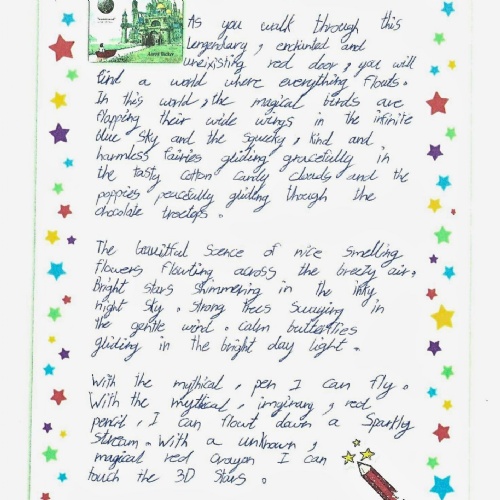 As you walk through this
lengendary, enchnted and
unexisting red door, you will
find a world where everything flouts.
In this world, the magical birds are
flapping their wide wings in the infinite
blue sky and the squeeky, kind and
harmless fairies gliding gracefully in
the tasty cotton candy clouds and the
poppies peacefully gliding though the
chocolate treetops.
The beautiful scence of nice smelling
flowers flowting across the breezy air.
Bright stars shimmering in the inky
night sky. Strong trees swaying in
the gentle wind. calm butterflies
gliding in the bright day light.
With the mythical, pen I can fly.
With the mythical, imginary, red
pencil, I can flowt down a Sparkly
Stream. With a unknown,
magical red crayon I can
touch the 3D Stars.